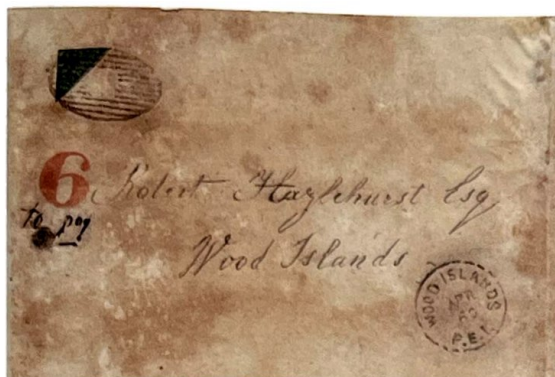 6
to pay
Robert Hazlehurst Esq
Wood Islands
WOOD ISLANDS
APR
P.E.I.